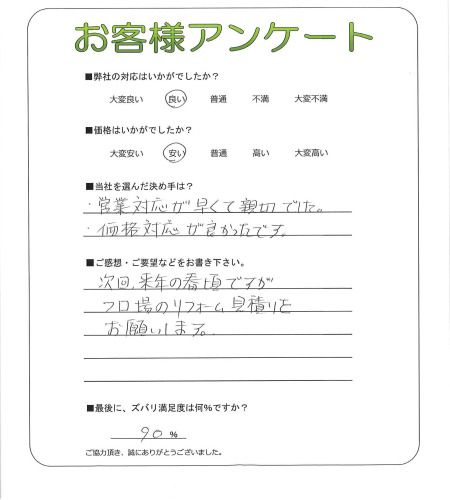 お客様アンケート
■弊社の対応はいかがでしたか?
大変良い 良い 普通 不満 大変不満
■価格はいかがでしたか?
大変安い 安い 普通 高い 大変高い
■当社を選んだ決め手は?
・営業対応が早くて親切でした。
・価格対応が良かったです。
■ご感想・ご要望などをお書き下さい。
次回、来年の春頃ですが
フロ場のリフォーム見積りを
お願いします。
■最後に、ズバリ満足度は何%ですか?
90 %
ご協力頂き、誠にありがとうございました。